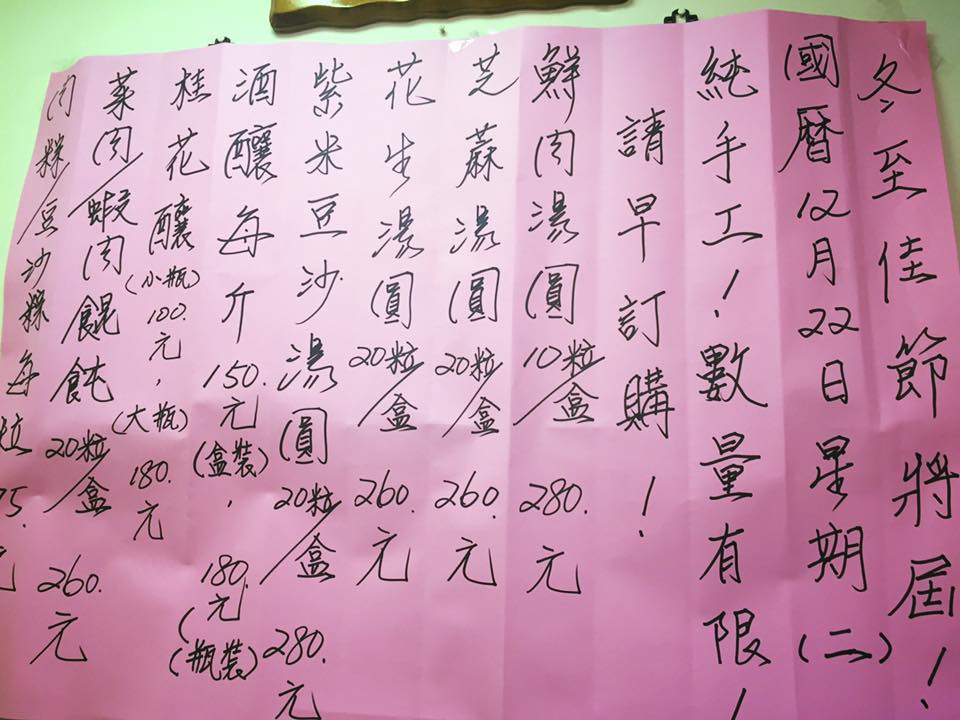 冬至佳節將屆！
國曆12月22日星期(二)
純手工！數量有限！
請早訂購！
鮮肉湯圓10粒/盒280.元
芝蔴湯圓20粒/盒260.元
花生湯圓20粒/盒260元
紫米豆沙湯圓20粒/盒280.元
酒釀每斤150.元(盒裝),180.元(瓶裝)
桂花釀(小瓶)100.元,(大瓶)180.元
菜肉/蝦肉餛飩20粒/盒260.元
肉粿/豆沙粿每粒5.元